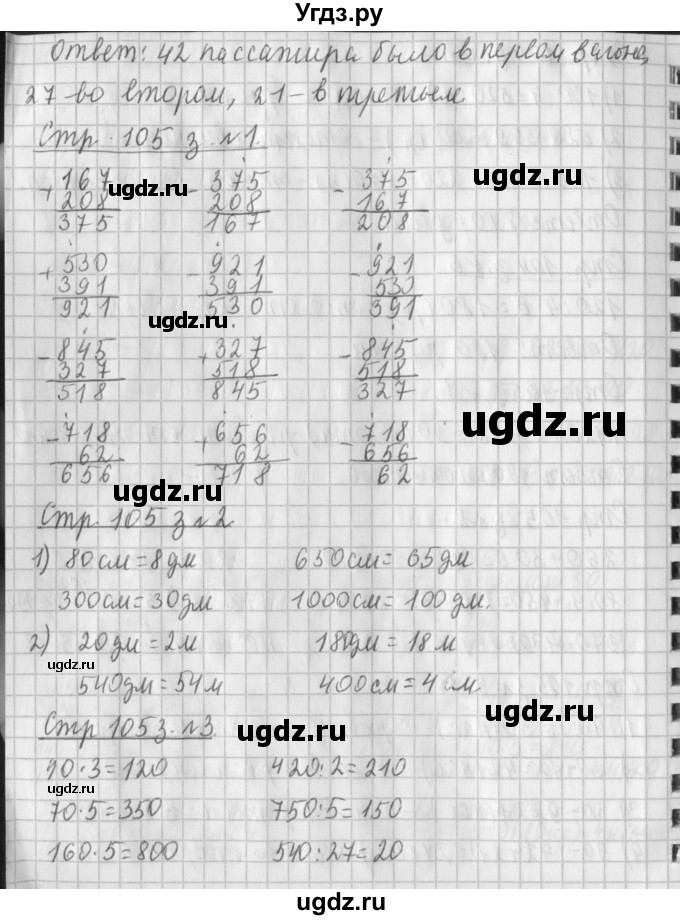 Угдз.ру
Ответ: 42 пассажира было в первом вагоне,
27 - во втором, 21 - в третьем
Стр. 105 з. №1.
+167 - 375 - 375
208 208 167
375 167 208
ugdz.ru ugdz.ru
+530 - 921 - 921
391 391 530
921 530 391
ugdz.ru
- 845 + 327 - 845
327 518 518
518 845 327
ugdz.ru
- 718 + 656 - 718
62 62 656
656 718 62
ugdz.ru
Стр. 105 з №2
1) 80 см = 8 дм 650 см = 65 дм
300 см = 30 дм 1000 см = 100 дм.
2) 20 дм = 2 м 180 дм = 18 м
ugdz.ru
540 дм = 54 м 400 см = 4 м
ugdz.ru
Стр 105 з. №3.
ugdz.ru
40·3=120 420:2=210
ugdz.ru
70·5=350 750:5=150
160·5=800 540:27=20
ugdz.ru
ugdz.ru